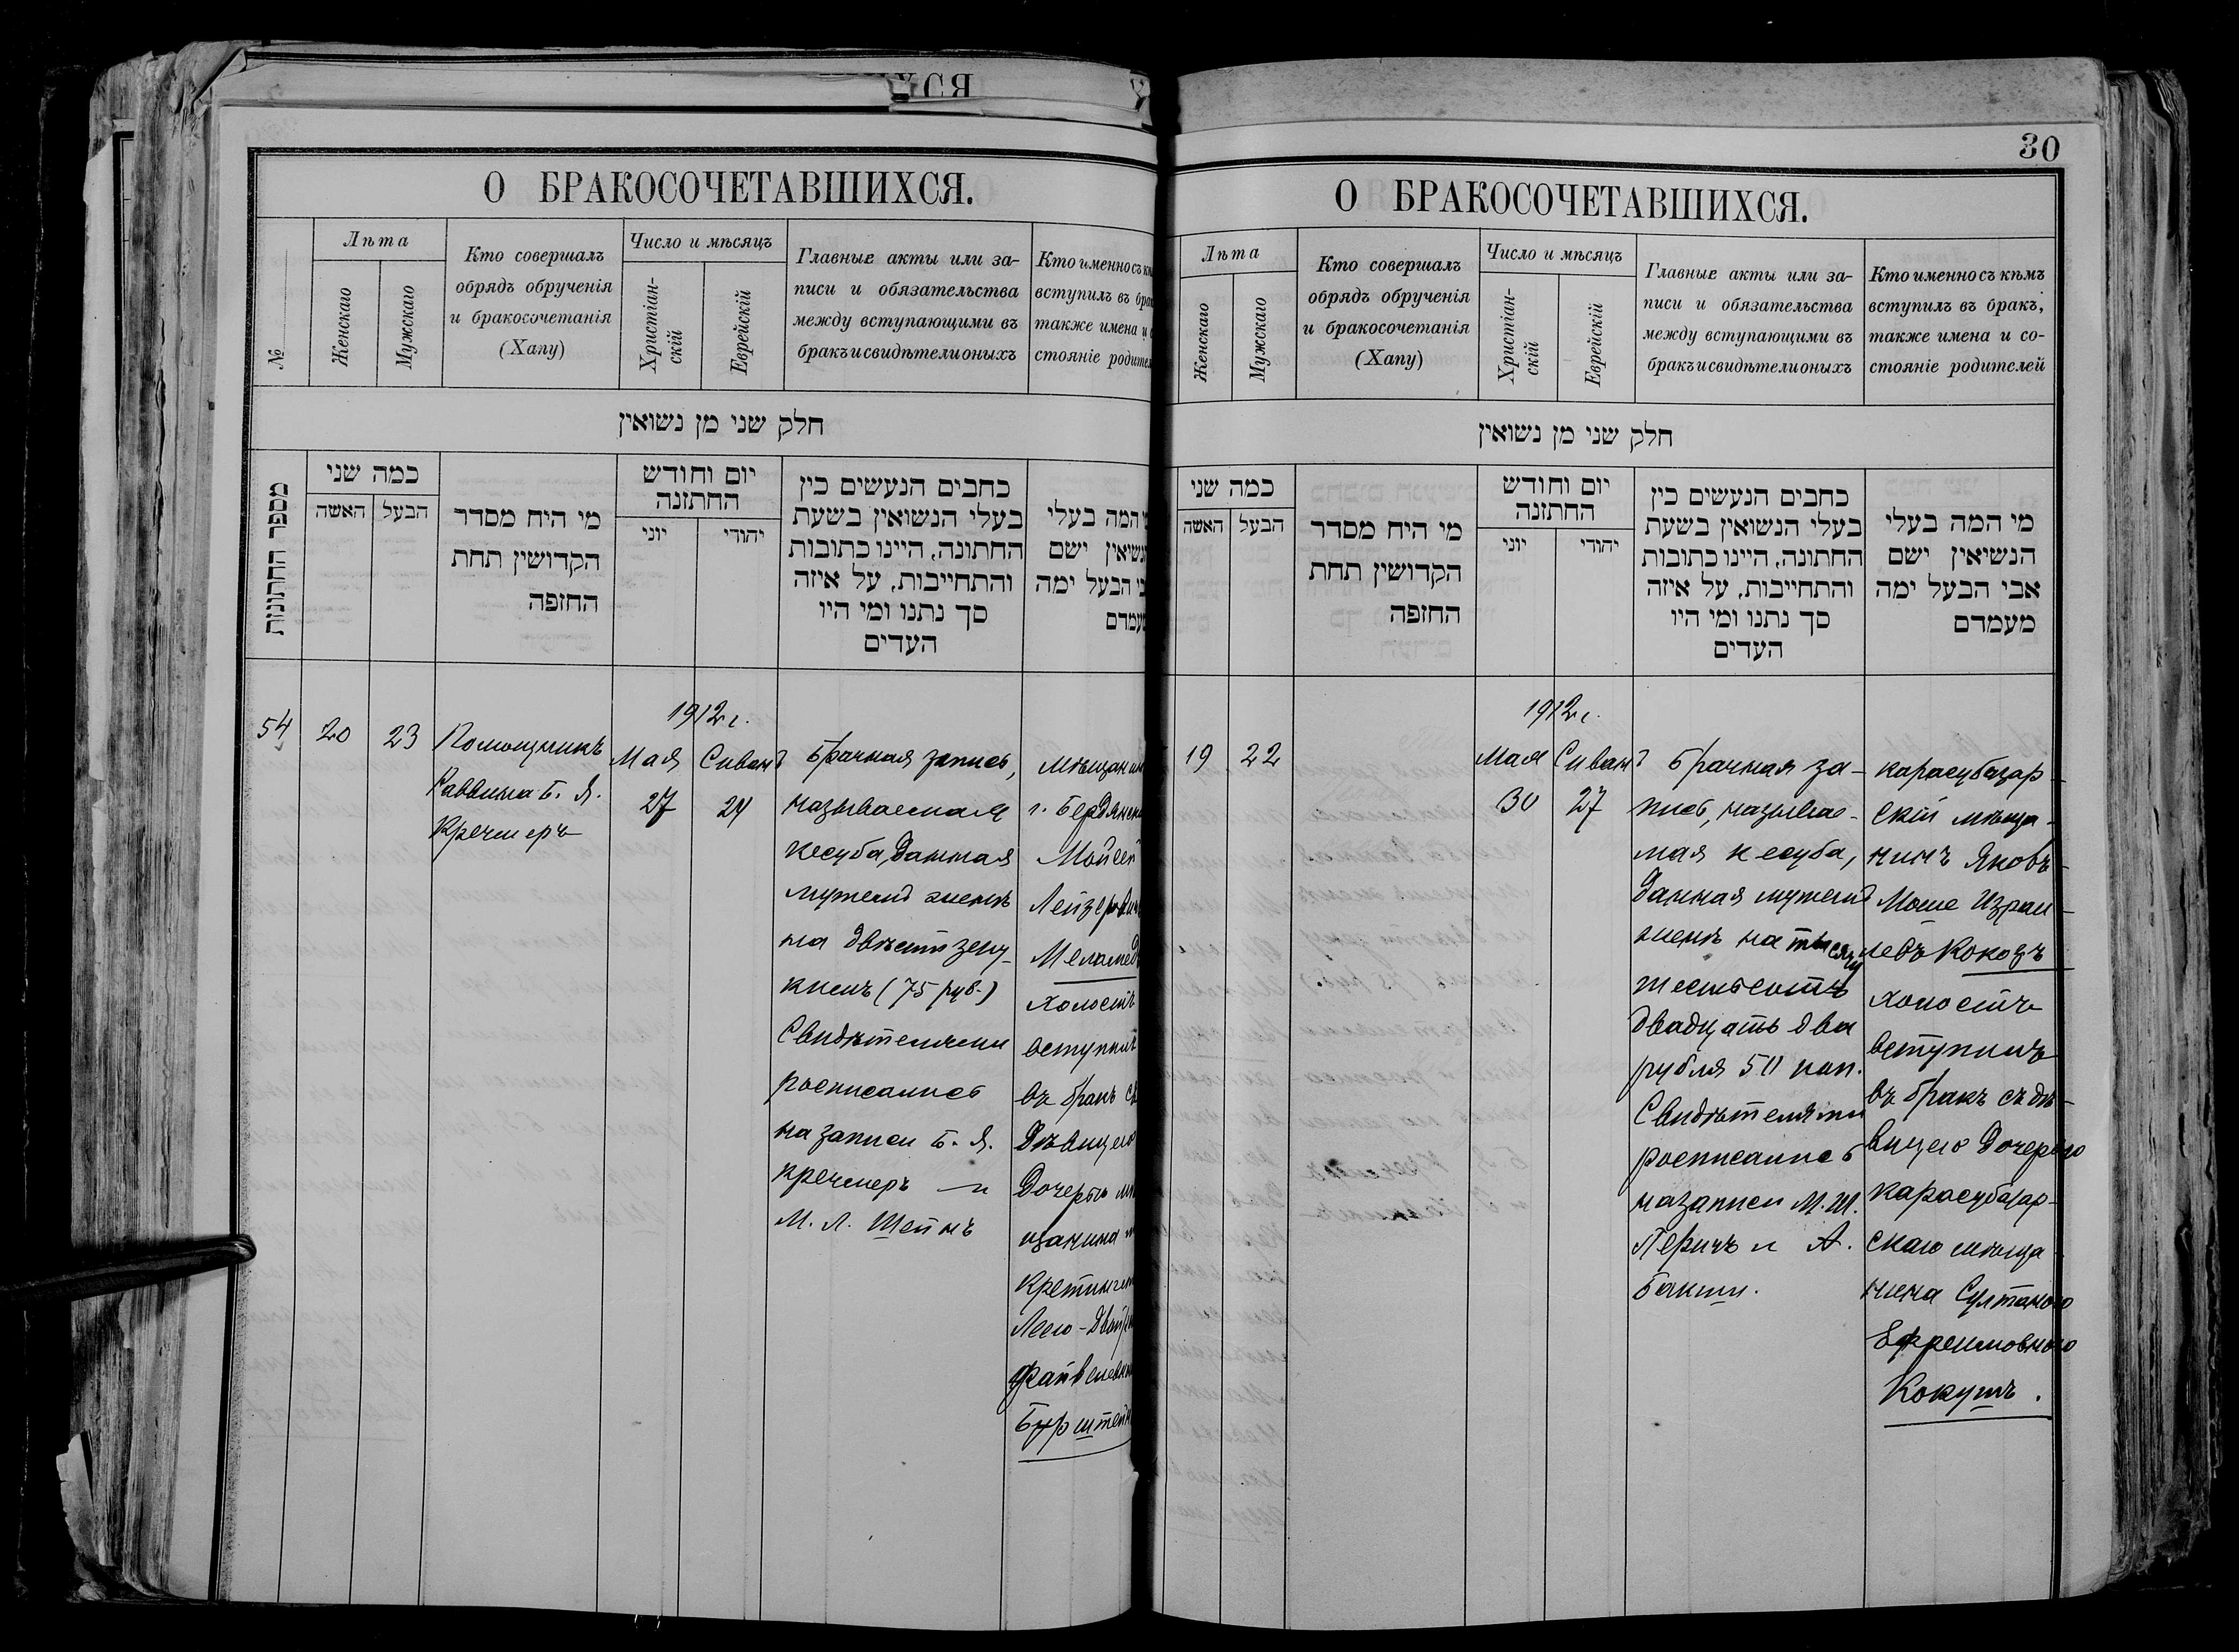 30
О БРАКОСОЧЕТАВШИХСЯ.
№
Лѣта
Женскаго
Мужскаго
Кто совершалъ
обрядъ обрученія
и бракосочетанія
(Хапу)
Число и мѣсяцъ
Христіан-
скій
Еврейскій
Главные акты или за-
писи и обязательства
между вступающими въ
бракъ и свидѣтели оныхъ
Кто именно съ
вступилъ въ
также имена и
стояніе
חלק שני מן נשואין
מספר החתונות
כמה שני
האשה
הבעל
מי היח מסדר
הקדושין תחת
החזפה
יום וחודש
החתזנה
יוני
יהודי
כחבים הנעשים כין
בעלי הנשואין בשעת
החתונה, היינו כתובות
והתחייבות, על איזה
סך נתנו ומי היו
העדים
המה בעלי
ישם
הבעל ימה
54
20
23
Помощникъ
Раввина Б. Я.
Кречмеръ
1912 г.
Мая
27
Сиванъ
24
Брачная запись,
называемая
кесуба, данная
мужемъ женѣ
на двѣсти злу-
кихъ (75 руб.)
Свидѣтелями
росписались
на записи Б. Я.
Кречмеръ и
М. Л. Шейнъ
г.
Мойсей
Меламедъ
холостъ
вступилъ
въ бракъ съ
дѣвицею
дочерью
Лею-
О БРАКОСОЧЕТАВШИХСЯ.
Лѣта
Женскаго
Мужскаго
Кто совершалъ
обрядъ обрученія
и бракосочетанія
(Хапу)
Число и мѣсяцъ
Христіан-
скій
Еврейскій
Главные акты или за-
писи и обязательства
между вступающими въ
бракъ и свидѣтели оныхъ
Кто именно съ кѣмъ
вступилъ въ бракъ,
также имена и со-
стояніе родителей
חלק שני מן נשואין
כמה שני
האשה
הבעל
מי היח מסדר
הקדושין תחת
החזפה
יום וחודש
החתזנה
יוני
יהודי
כחבים הנעשים כין
בעלי הנשואין בשעת
החתונה, היינו כתובות
והתחייבות, על איזה
סך נתנו ומי היו
העדים
מי המה בעלי
הנשיאין ישם
אבי הבעל ימה
מעמדם
19
22
1912 г.
Мая
30
Сиванъ
27
Брачная за-
пись, называе-
мая кесуба,
данная мужемъ
женѣ на тысячу
шестьсотъ
двадцать два
рубля 50 коп.
Свидѣтелями
росписались
на записи М. Ш.
Перичъ и А.
Бакши.
карасубазар-
скій мѣща-
нинъ Яковъ-
Моше Израи-
левъ Кокозъ
холостъ
вступилъ
въ бракъ съ дѣ-
вицею дочерью
карасубазар-
скаго мѣща-
нина Султаною
Ефреимовною
Кокушъ.